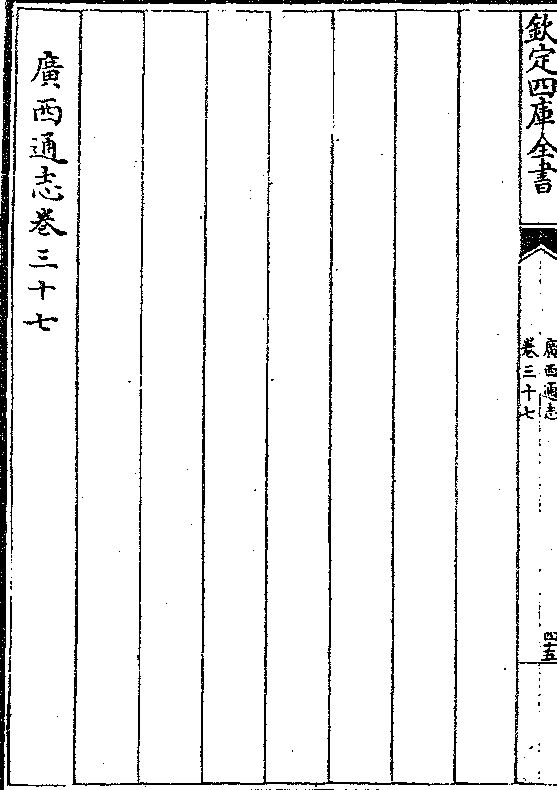 欽定四庫全書
廣西通志
卷三十七
四十五
廣西通志卷三十七